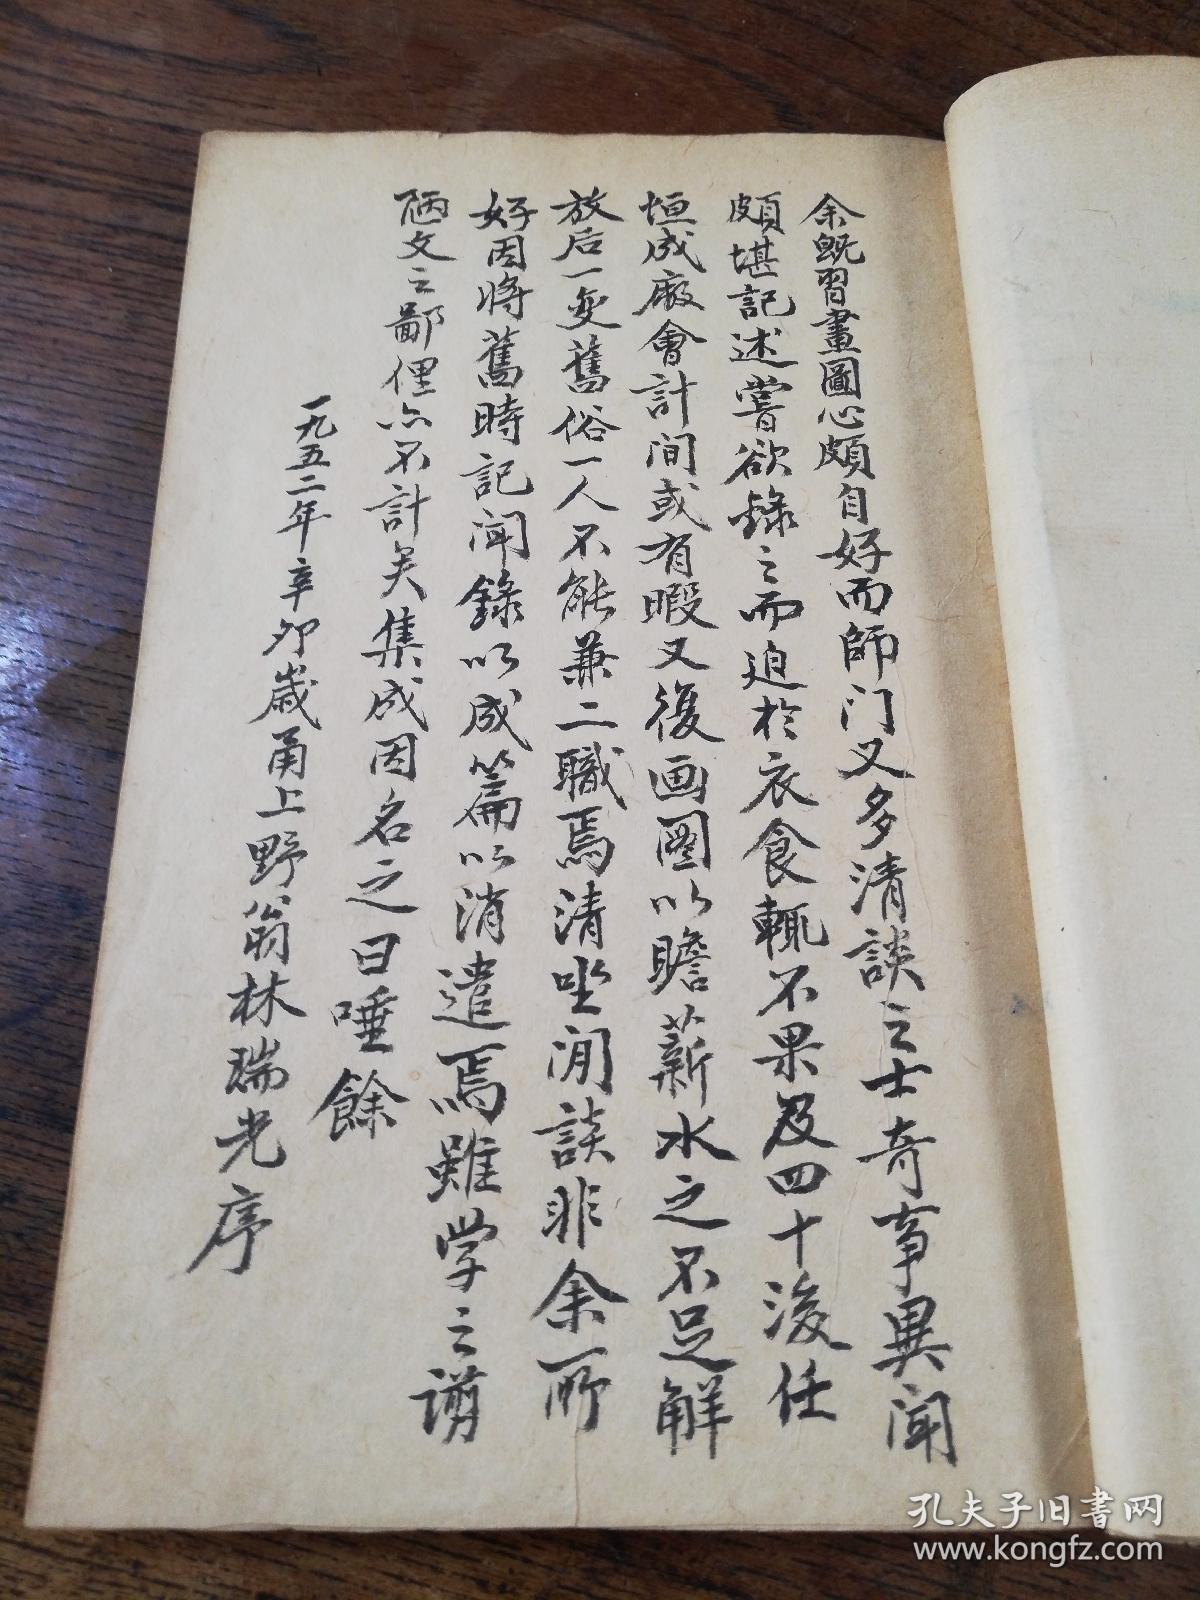 余既習畫圖心頗自好而師门又多清談之士奇事異闻
頗堪記述嘗欲錄之而迫於衣食輒不果及四十後任
恒成廠會計间或有暇又復画圖以瞻薪水之不足解
放后一变舊俗一人不能兼二職焉清坐闲談非余所
好因将舊時記闻錄以成篇以消遣焉雖学之谫
陋文之鄙俚亦不計矣集成因名之曰唾餘
一九五二年辛卯歲甬上野翁林瑞光序
孔夫子旧书网
www.kongfz.com